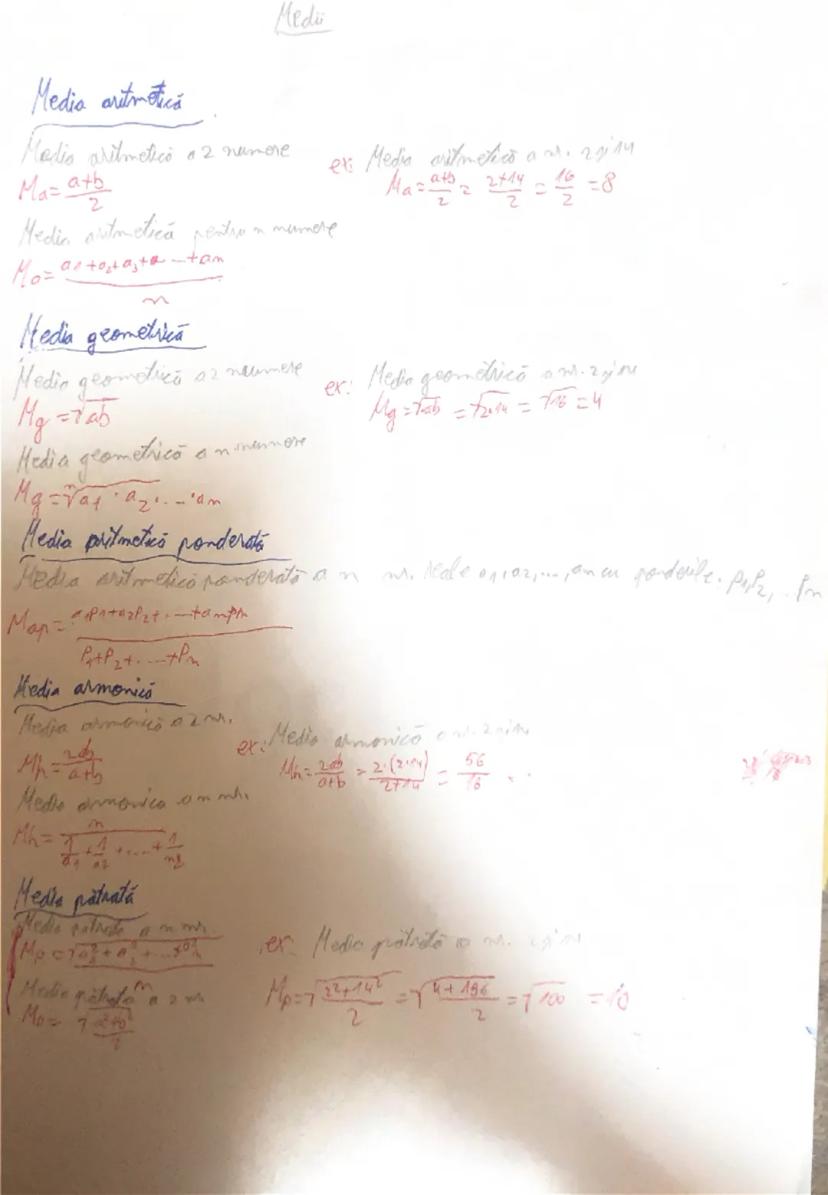 Medii
Media aritmetică
Media aritmetică a 2 numere
Ma = a+b / 2
ex: Media aritmetică a nr. 2 și 14
Ma = a+b / 2 = 2+14 / 2 = 16 / 2 = 8
Media aritmetică pentru n numere
Ma = a1+a2+a3+a...+an / n
Media geometrică
Media geometrică a 2 numere
Mg = √ab
ex: Media geometrică a nr. 2 și
Mg = √ab = √2·14 = √16 = 4
Media geometrică a n numere
Mg = ⁿ√a1 · a2 · ... · an
Media aritmetică ponderată
Media aritmetică ponderată a n nr. reale a1, a2, ..., an cu ponderile p1, p2, ... pn
Map = a1p1+a2p2+...+anpn / p1+p2+...+pn
Media armonică
Media armonică a 2 nr.
Mh = 2ab / a+b
ex: Media armonică a nr. 2 și
Mh = 2ab / a+b = 2·(2·14) / 2+14 = 56 / 16
Media armonica a n nr.
Mh = n / 1/a1 + 1/a2 + ... + 1
Media pătrată
Media pătrată a n nr.
ex: Media pătrată a nr. 2 și
Mp = √2²+14² / 2 = √4+196 / 2 = √100 = 10
Media pătrată a 2 nr
Mp = √a²+b² / 2